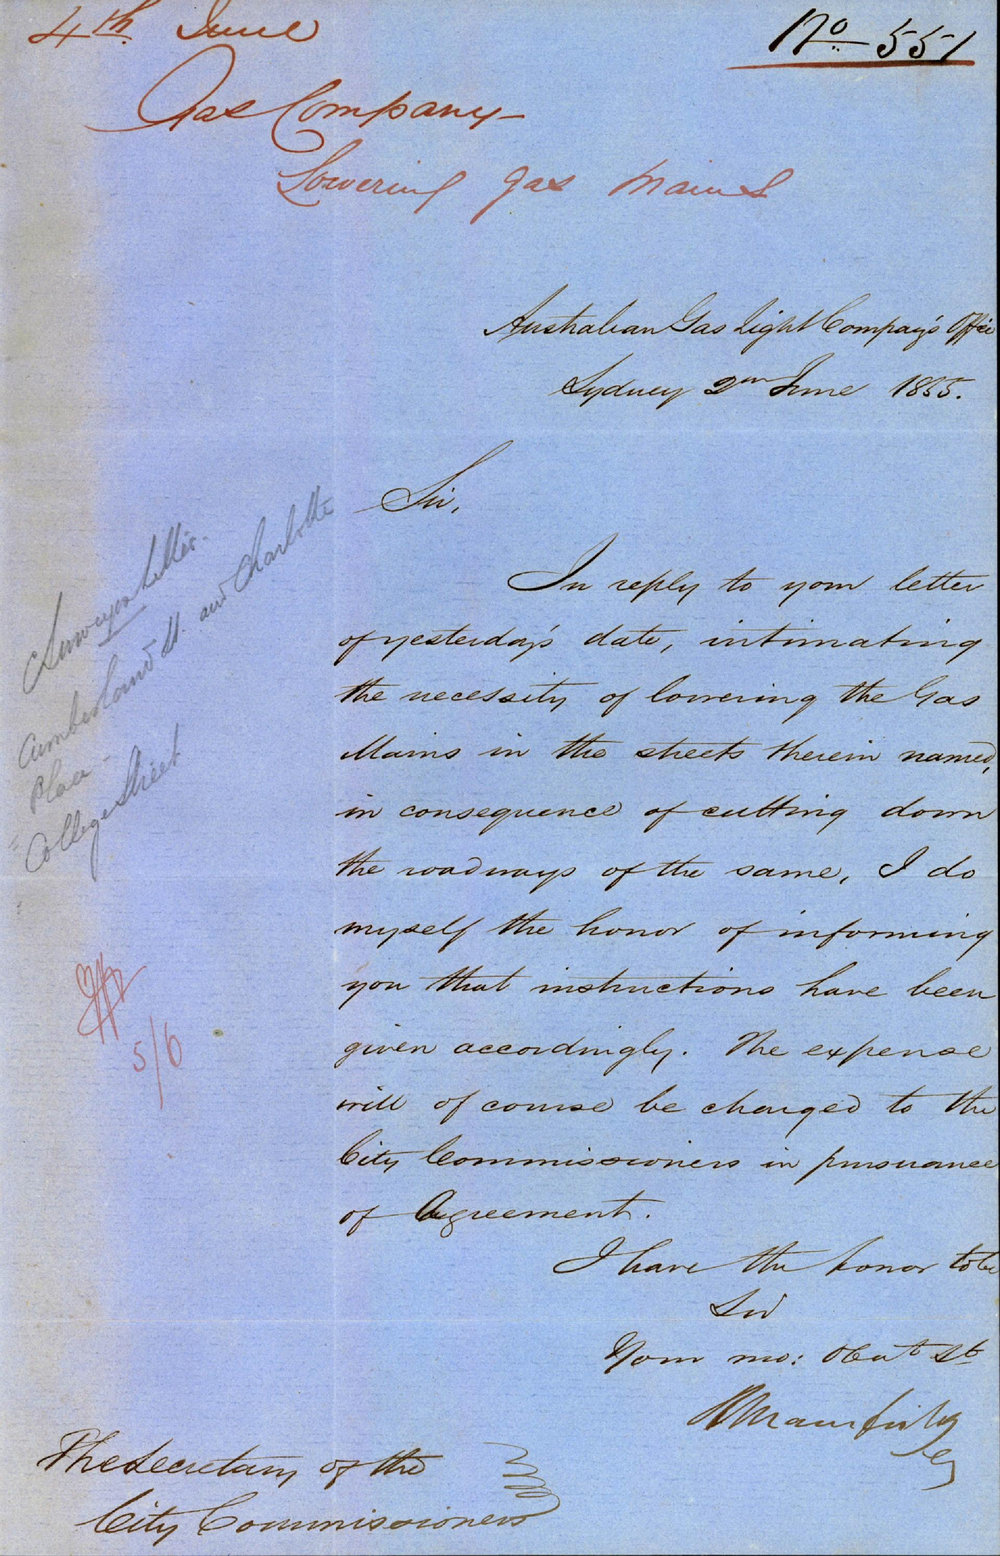 4th June
No 551
Gas Company
Lowering Gas Mains
Australian Gas Light Company's Office
Sydney 2nd June 1855.
Sir,
In reply to your letter
of yesterday's date, intimating
the necessity of lowering the Gas
Mains in the streets therein named,
in consequence of cutting down
the roadways of the same, I do
myself the honor of informing
you that instructions have been
given accordingly. The expense
will of course be charged to the
City Commissioners in pursuance
of Agreement.
I have the honor to be
Sir
Your mo: Obent St
The Secretary of the
City Commissioners
Surveyors Letter.
Cumberland St. and Charlotte
Place
College Street
5/6